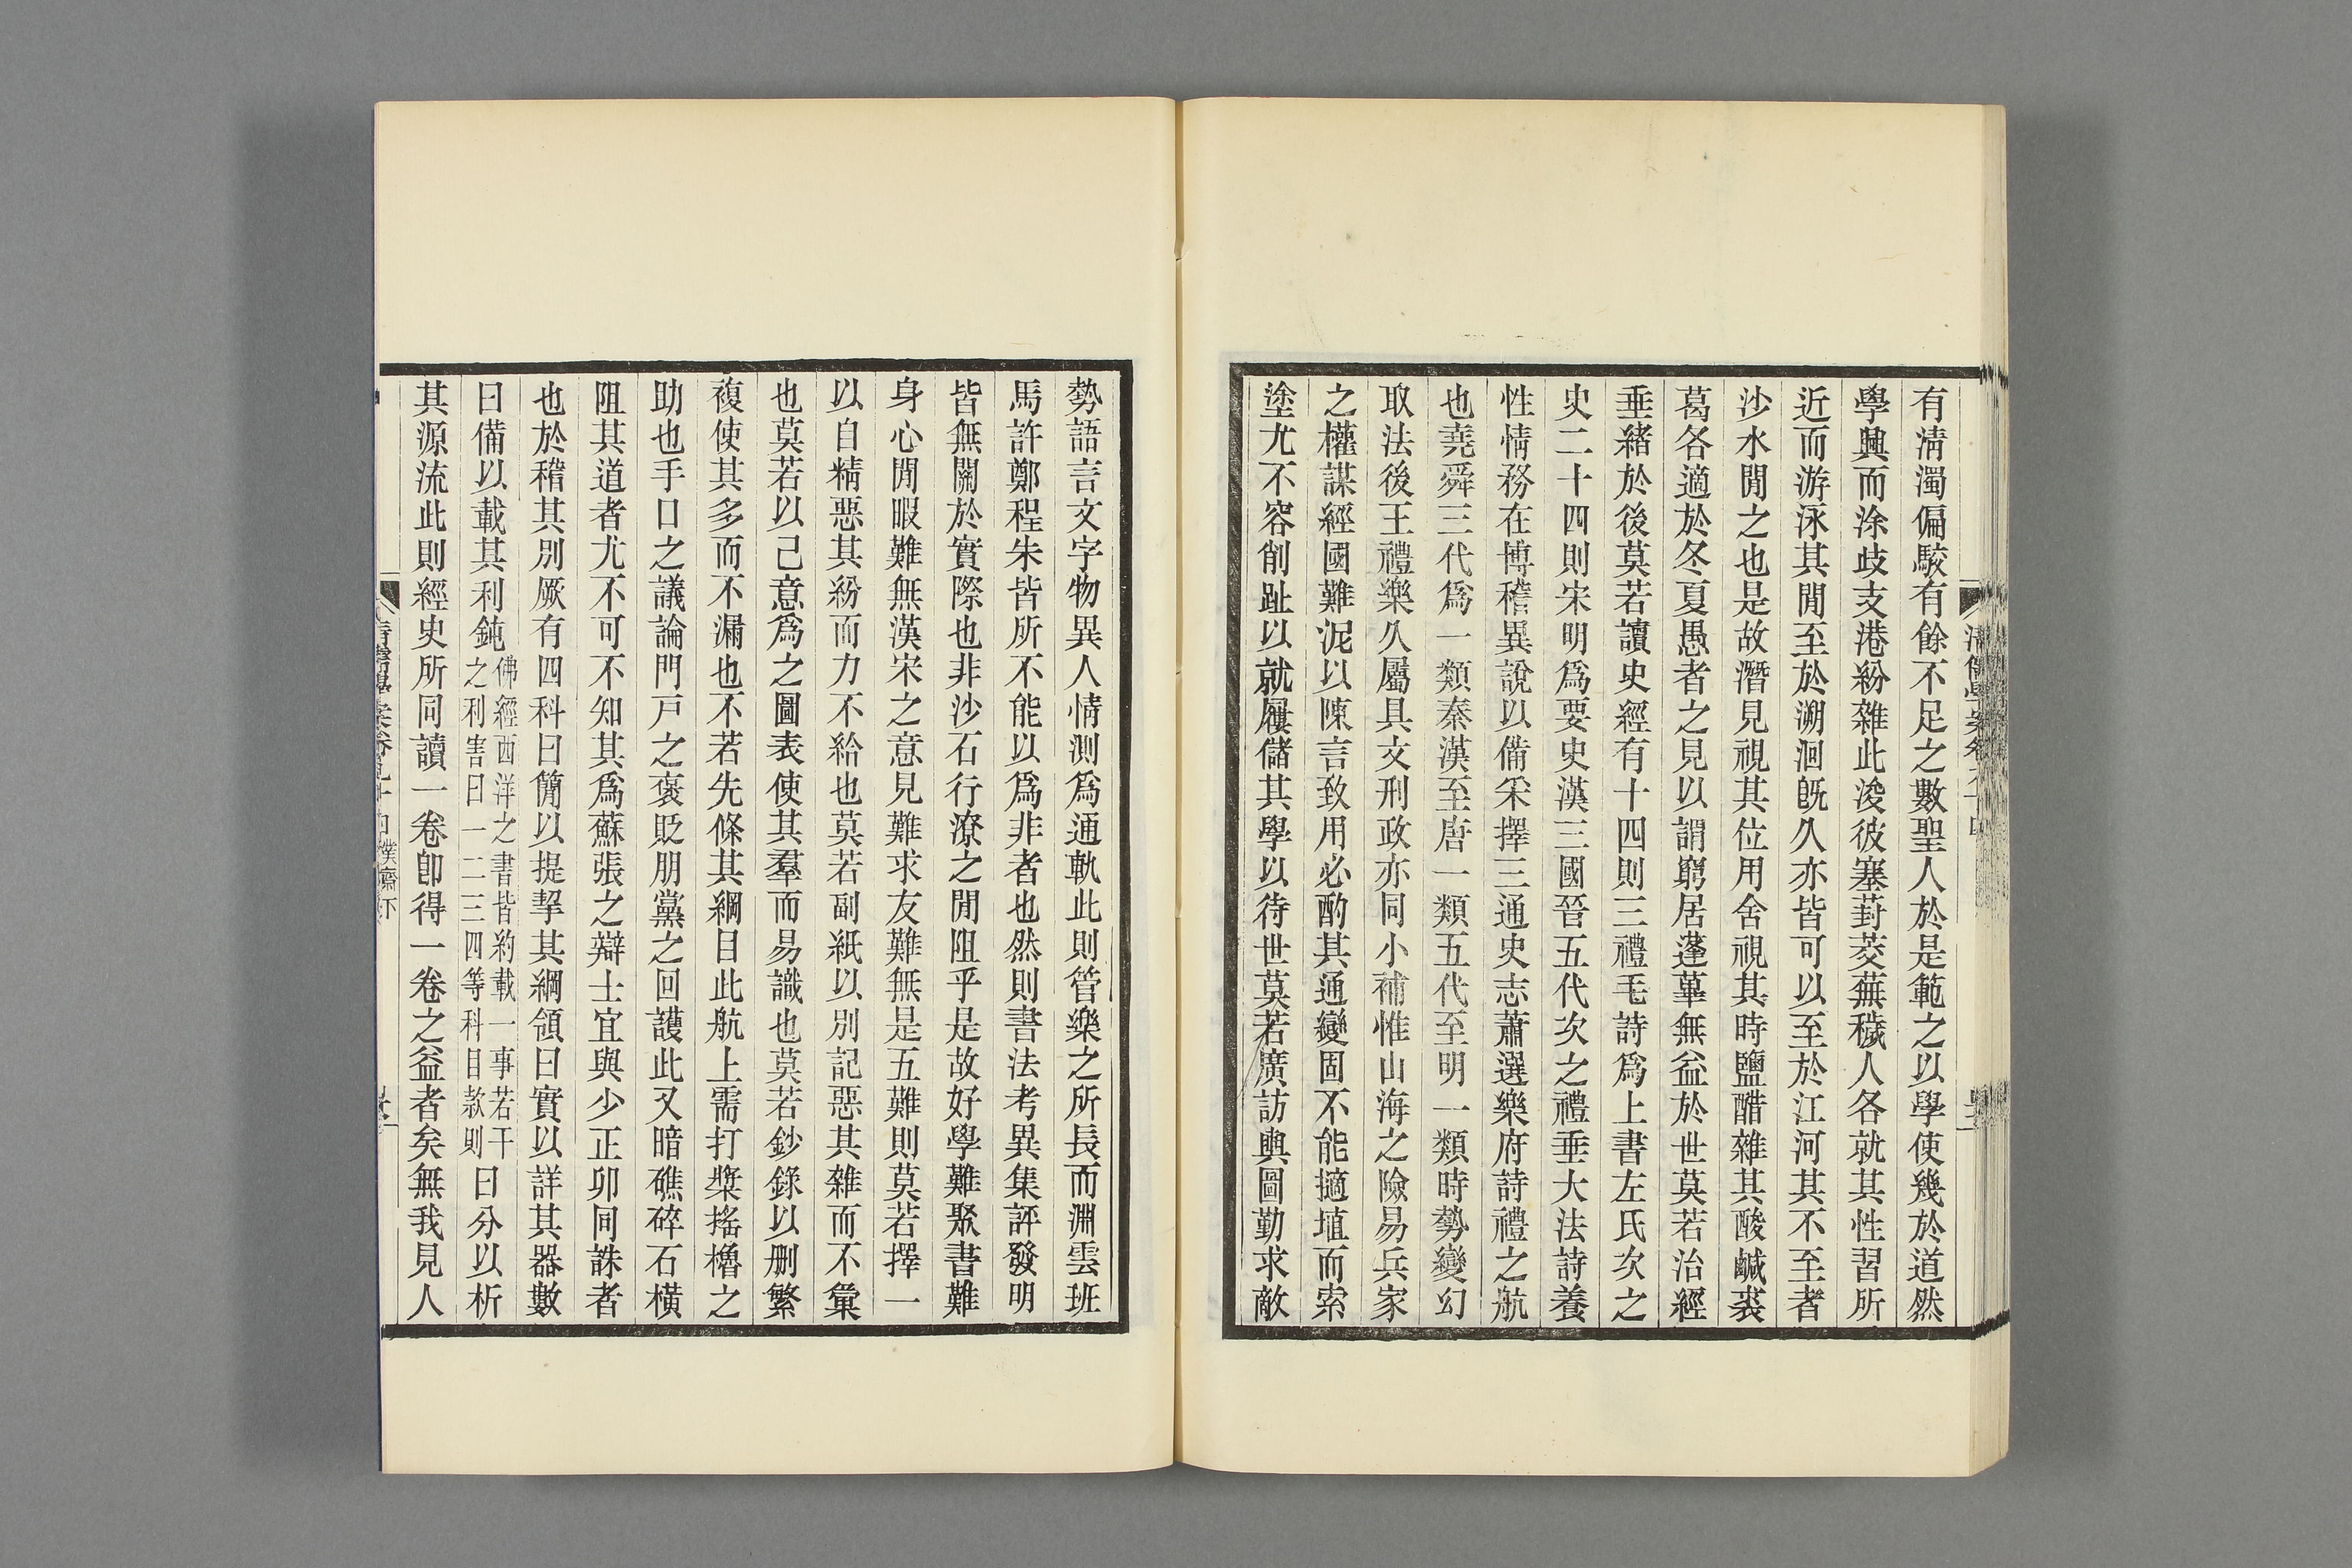 有淸濁偏駮有餘不足之數聖人於是範之以學使幾於道然
學興而涂歧支港紛雜此浚彼塞葑茭蕪穢人各就其性習所
近而游泳其閒至於溯洄旣久亦皆可以至於江河其不至者
沙水閒之也是故潛見視其位用舍視其時鹽醋雜其酸鹹裘
葛各適於冬夏愚者之見以謂窮居蓬蓽無益於世莫若治經
垂緒於後莫若讀史經有十四則三禮毛詩爲上書左氏次之
史二十四則宋明爲要史漢三國晉五代次之禮垂大法詩養
性情務在博稽異說以備采擇三通史志蕭選樂府詩禮之航
也堯舜三代爲一類秦漢至唐一類五代至明一類時勢變幻
取法後王禮樂久屬具文刑政亦同小補惟山海之險易兵家
之權謀經國難泥以陳言致用必酌其通變固不能擿埴而索
塗尤不容削趾以就屨儲其學以待世莫若廣訪輿圖勤求敵
勢語言文字物異人情測爲通軌此則管樂之所長而淵雲班
馬許鄭程朱皆所不能以爲非者也然則書法考異集評發明
皆無關於實際也非沙石行潦之閒阻乎是故好學難聚書難
身心閒暇難無漢宋之意見難求友難無是五難則莫若擇一
以自精惡其紛而力不給也莫若副紙以別記惡其雜而不彙
也莫若以己意爲之圖表使其羣而易識也莫若鈔錄以刪繁
複使其多而不漏也不若先條其綱目此航上需打槳搖櫓之
助也手口之議論門戸之褒貶朋黨之回護此又暗礁碎石橫
阻其道者尤不可不知其爲蘇張之辯士宜與少正卯同誅者
也於稽其別厥有四科曰簡以提挈其綱領曰實以詳其器數
曰備以載其利鈍佛經西洋之書皆約載一事若干之利害曰一二三四等科目款則曰分以析
其源流此則經史所同讀一卷卽得一卷之益者矣無我見人